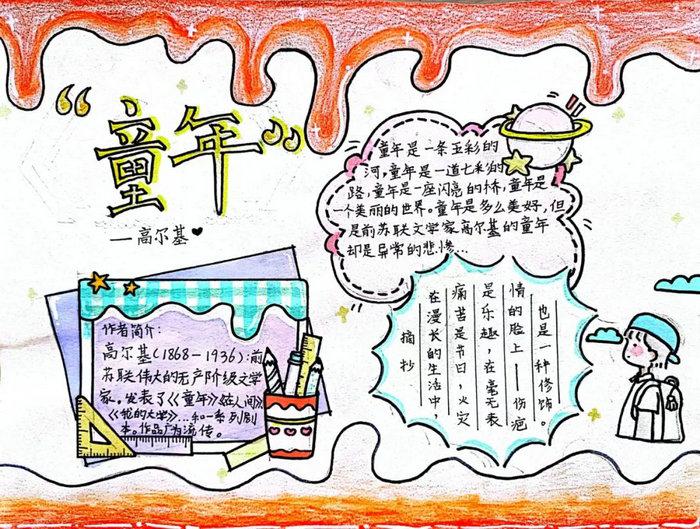 “童年”
—高尔基
童年是一条五彩的
河,童年是一道七彩的
路,童年是一座闪亮的桥,童年是
一个美丽的世界。童年是多么美好,但
是前苏联文学家高尔基的童年
却是异常的悲惨…
作者简介:
高尔基(1868-1936):前
苏联伟大的无产阶级文学
家。发表了《童年》《在人间》
《我的大学》…和一系列剧
本。作品广为流传。
摘抄
在漫长的生活中,
痛苦是节日,火灾
是乐趣,在毫无表
情的脸上——伤疤
也是一种修饰。